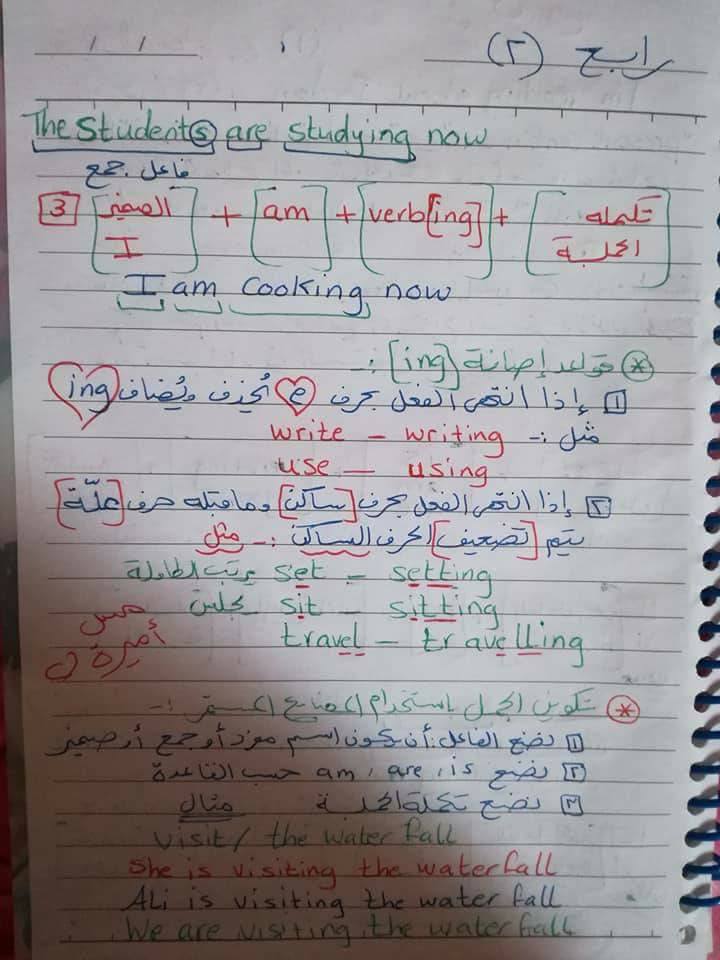 رابع (٢)
/ /
The Students are studying now
فاعل جمع
3 الضمير I + am + verb[ing] + تكملة الجملة
I am cooking now
* قواعد إضافة [ing] :-
1 إذا انتهى الفعل بحرف e يُحذف ويُضاف ing
مثل :- write - writing
use - using
٢ إذا انتهى الفعل بحرف [ساكن] وماقبله حرف [علّة]
يتم [تضعيف] الحرف الساكن :- مثل
يرتب الطاولة set - setting
يجلس sit - sitting
travel - travelling
أميرة
* تكوين الجمل باستخدام المضارع المستمر :-
1 نضع الفاعل: أن يكون اسم مفرد أو جمع أو ضمير
٢ نضع am, are, is حسب القاعدة
٣ نضع تكملة الجملة مثال
visit / the water fall
She is visiting the water fall
Ali is visiting the water fall
We are visiting the water fall